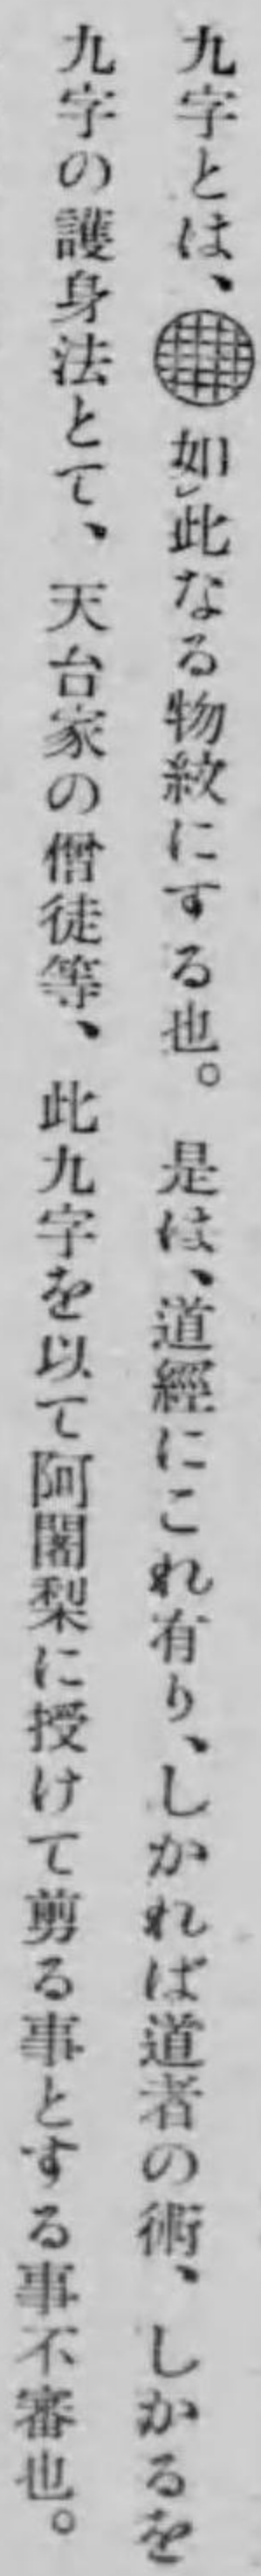 九字とは、如㆑此なる物紋にする也。是は、道經にこれ有り、しかれば道者の術、しかるを
九字の護身法とて、天台家の僧徒等、此九字を以て阿闍梨に授けて剪る事とする事不審也。